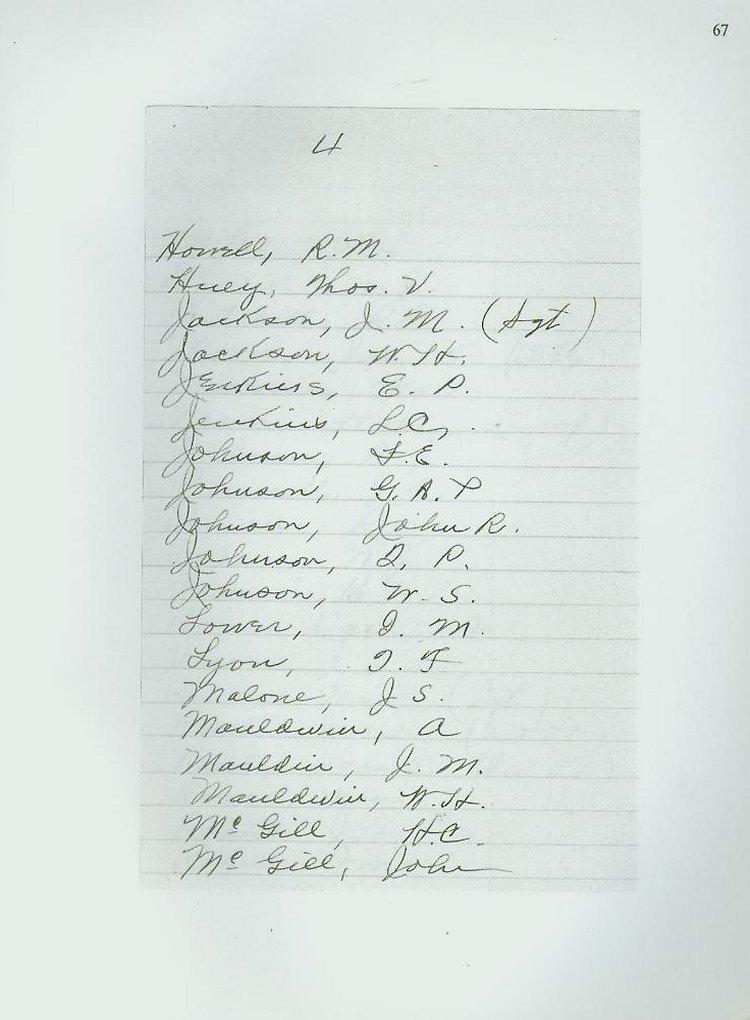 67
4
Howell, R.M.
Huey, Thos. V.
Jackson, J. M. (Sgt)
Jackson, W.H.
Jenkins, E. P.
Jenkins, L.C.
Johnson, F.E.
Johnson, G.A.P
Johnson, John R.
Johnson, D. P.
Johnson, W. S.
Lower, I. M.
Lyon, T. F
Malone, J S.
Mauldwin, A
Mauldin, J. M.
Mauldwin, W.H.
Mc Gill, H.C.
Mc Gill, John